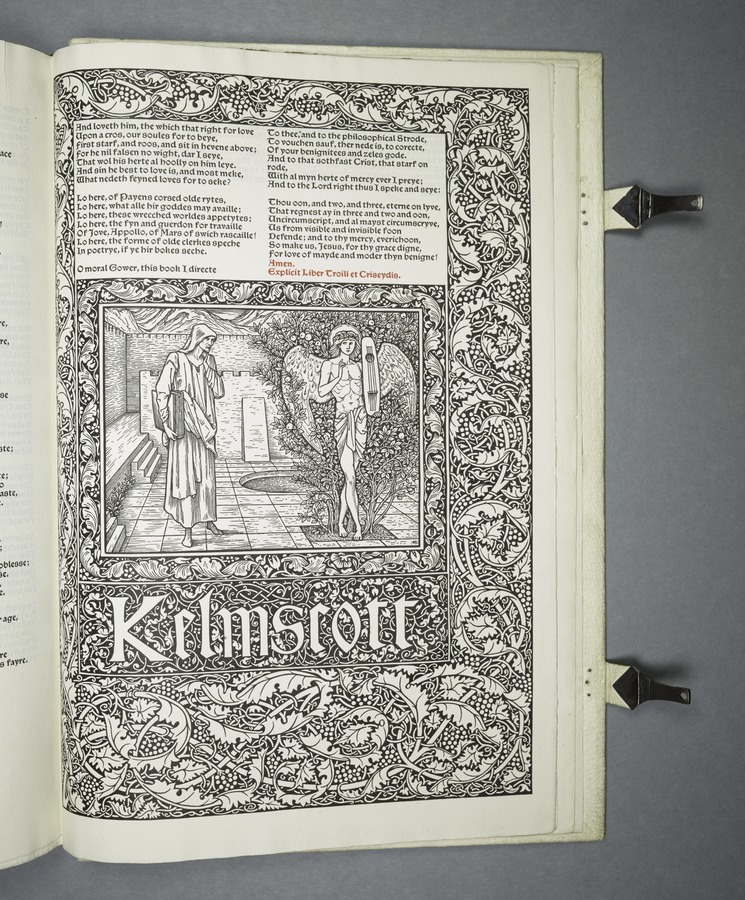 ace
re,
re,
se
ste;
te;
o
aste,
oblesse;
se.
e.
rage,
re
s fayre.
And loveth him, the which that right for love
Upon a cros, our soules for to beye,
First starf, and roos, and sit in hevene above;
For he nil falsen no wight, dar I seye,
That wol his herte al hoolly on him leye.
And sin he best to love is, and most meke,
What nedeth feyned loves for to seke?
Lo here, of Payens corsed olde rytes,
Lo here, what alle hir goddes may availle;
Lo here, these wrecched worldes appetytes;
Lo here, the fyn and guerdon for travaille
Of Jove, Appollo, of Mars of swich rascaille!
Lo here, the forme of olde clerkes speche
In poetrye, if ye hir bokes seche.
O moral Gower, this book I directe
To thee, and to the philosophical Strode,
To vouchen sauf, ther nede is, to corecte,
Of your benignitees and zeles gode.
And to that sothfast Crist, that starf on
rode,
With al myn herte of mercy ever I preye;
And to the Lord right thus I speke and seye:
Thou oon, and two, and three, eterne on lyve,
That regnest ay in three and two and oon,
Uncircumscript, and al mayst circumscryve,
Us from visible and invisible foon
Defende; and to thy mercy, everichoon,
So make us, Jesus, for thy grace digne,
For love of mayde and moder thyn benigne!
Amen.
Explicit Liber Troili et Criseydis.
Kelmscott